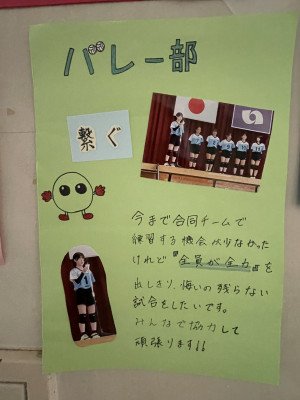 バレー部
繋ぐ
今まで合同チームで
練習する機会が少なかった
けれど『全員が全力』を
出しきり、悔いの残らない
試合をしたいです。
みんなで協力して
頑張ります!!